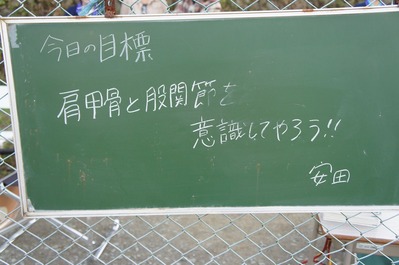 今日の目標
肩甲骨と股関節を
意識してやろう!!
安田